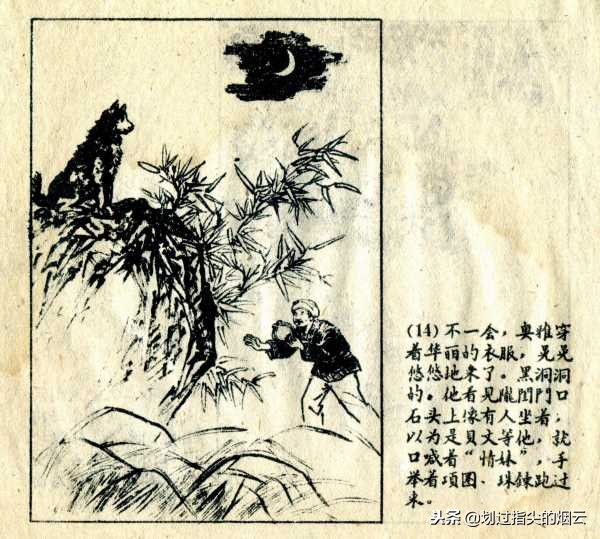 (14)不一会，奥雅穿
着华丽的衣服，晃晃
悠悠地来了。黑洞洞
的。他看见陇闾門口
石头上像有人坐着，
以为是貝文等他，就
口喊着“情妹”，手
举着项圈、珠鍊跑过
来。
头条 @划过指头的烟云